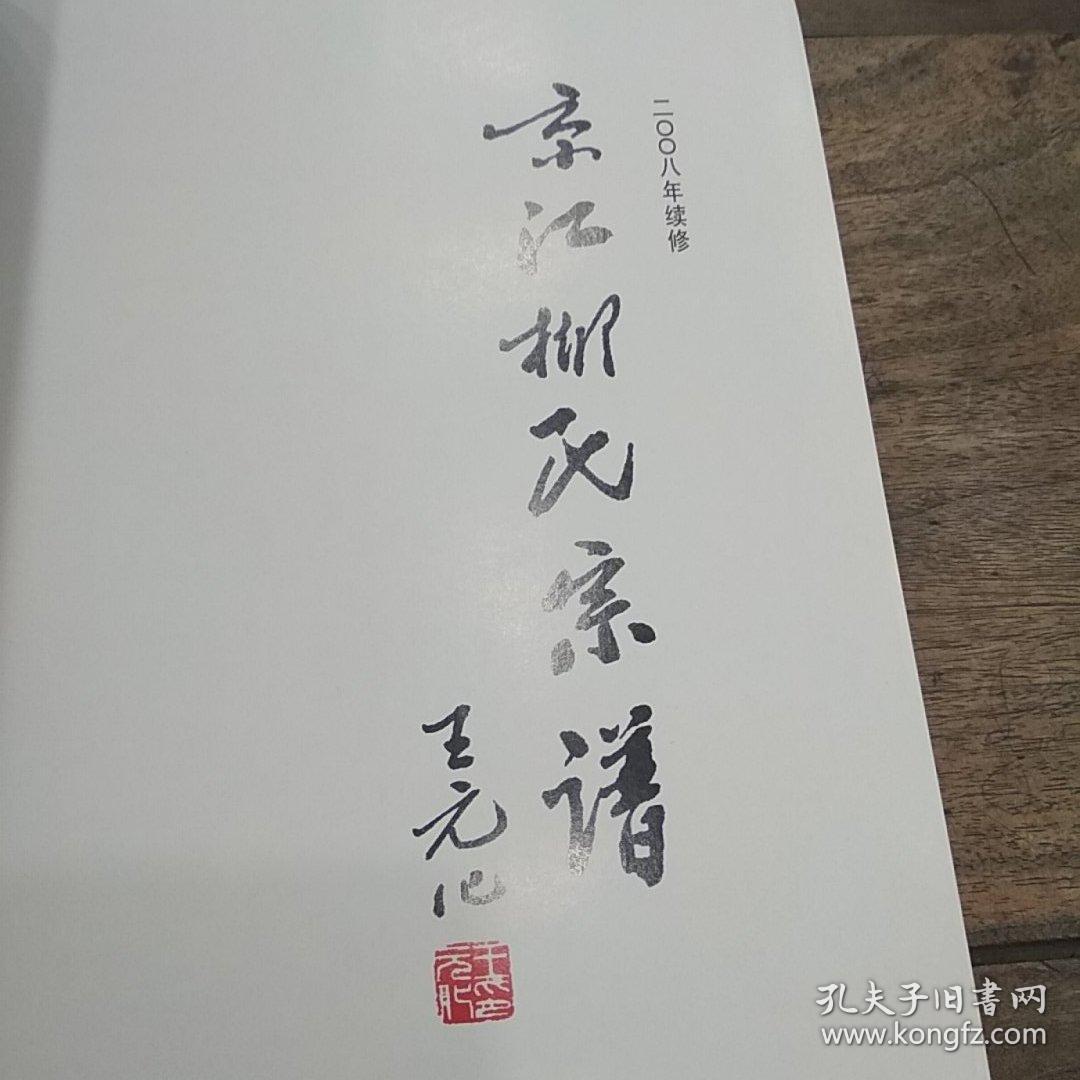 二〇〇八年续修
京江柳氏宗譜
王元化
孔夫子旧書网
www.kongfz.com